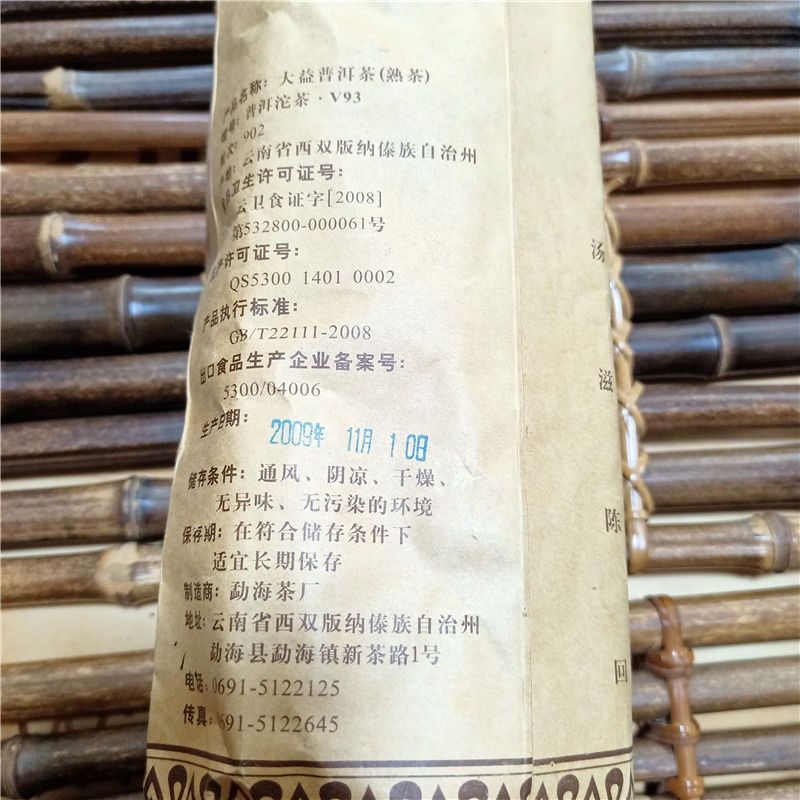 产品名称：大益普洱茶(熟茶)
型号：普洱沱茶·V93
批次：902
产地：云南省西双版纳傣族自治州
食品卫生许可证号：
云卫食证字[2008]
第532800-000061号
生产许可证号：
QS5300 1401 0002
产品执行标准：
GB/T22111-2008
出口食品生产企业备案号：
5300/04006
生产日期：2009年 11月 10日
储存条件：通风、阴凉、干燥、
无异味、无污染的环境
保存期：在符合储存条件下
适宜长期保存
制造商：勐海茶厂
地址：云南省西双版纳傣族自治州
勐海县勐海镇新茶路1号
电话：0691-5122125
传真：0691-5122645
汤
滋
陈
回